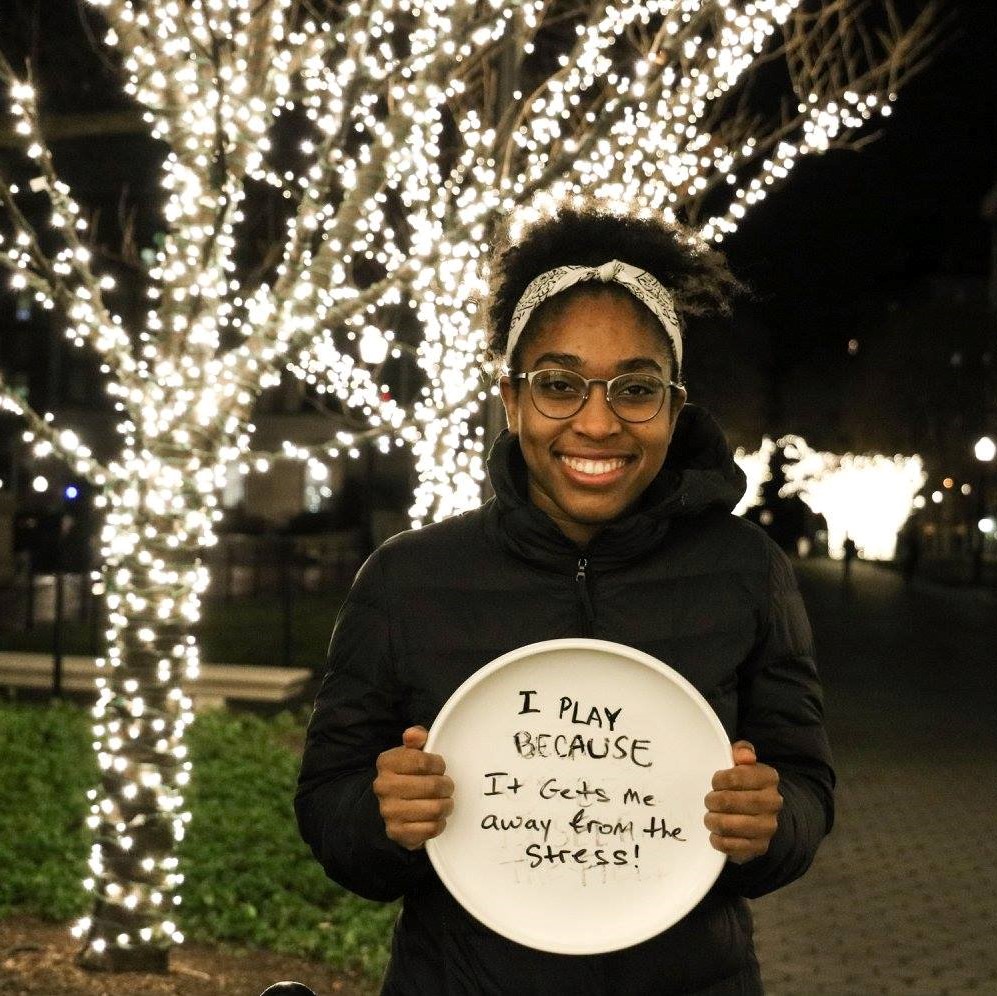 I PLAY
BECAUSE
It Gets me
away from the
Stress!